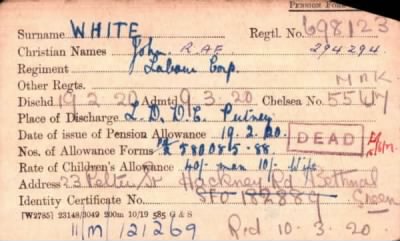 PENSION FORM
Surname WHITE Regtl. No. 698123
Christian Names John. RAF 294294.
Regiment Labour Corp.
Other Regts. MNK
Dischd 19 2 20 Admtd 9.3.20. Chelsea No. 5547
Place of Discharge L.D.D.C. Putney
Date of issue of Pension Allowance 19.2.20. DEAD
Nos. of Allowance Forms 580085-88.
Rate of Children's Allowance 40/- man 10/- Wife
Address 23 St Hackney Rd Bethnal
Identity Certificate No. SFO 182889 Green
[W2785] 23148/3049 200m 10/19 585 G & S
11/M/121269 Rcd 10.3.20.